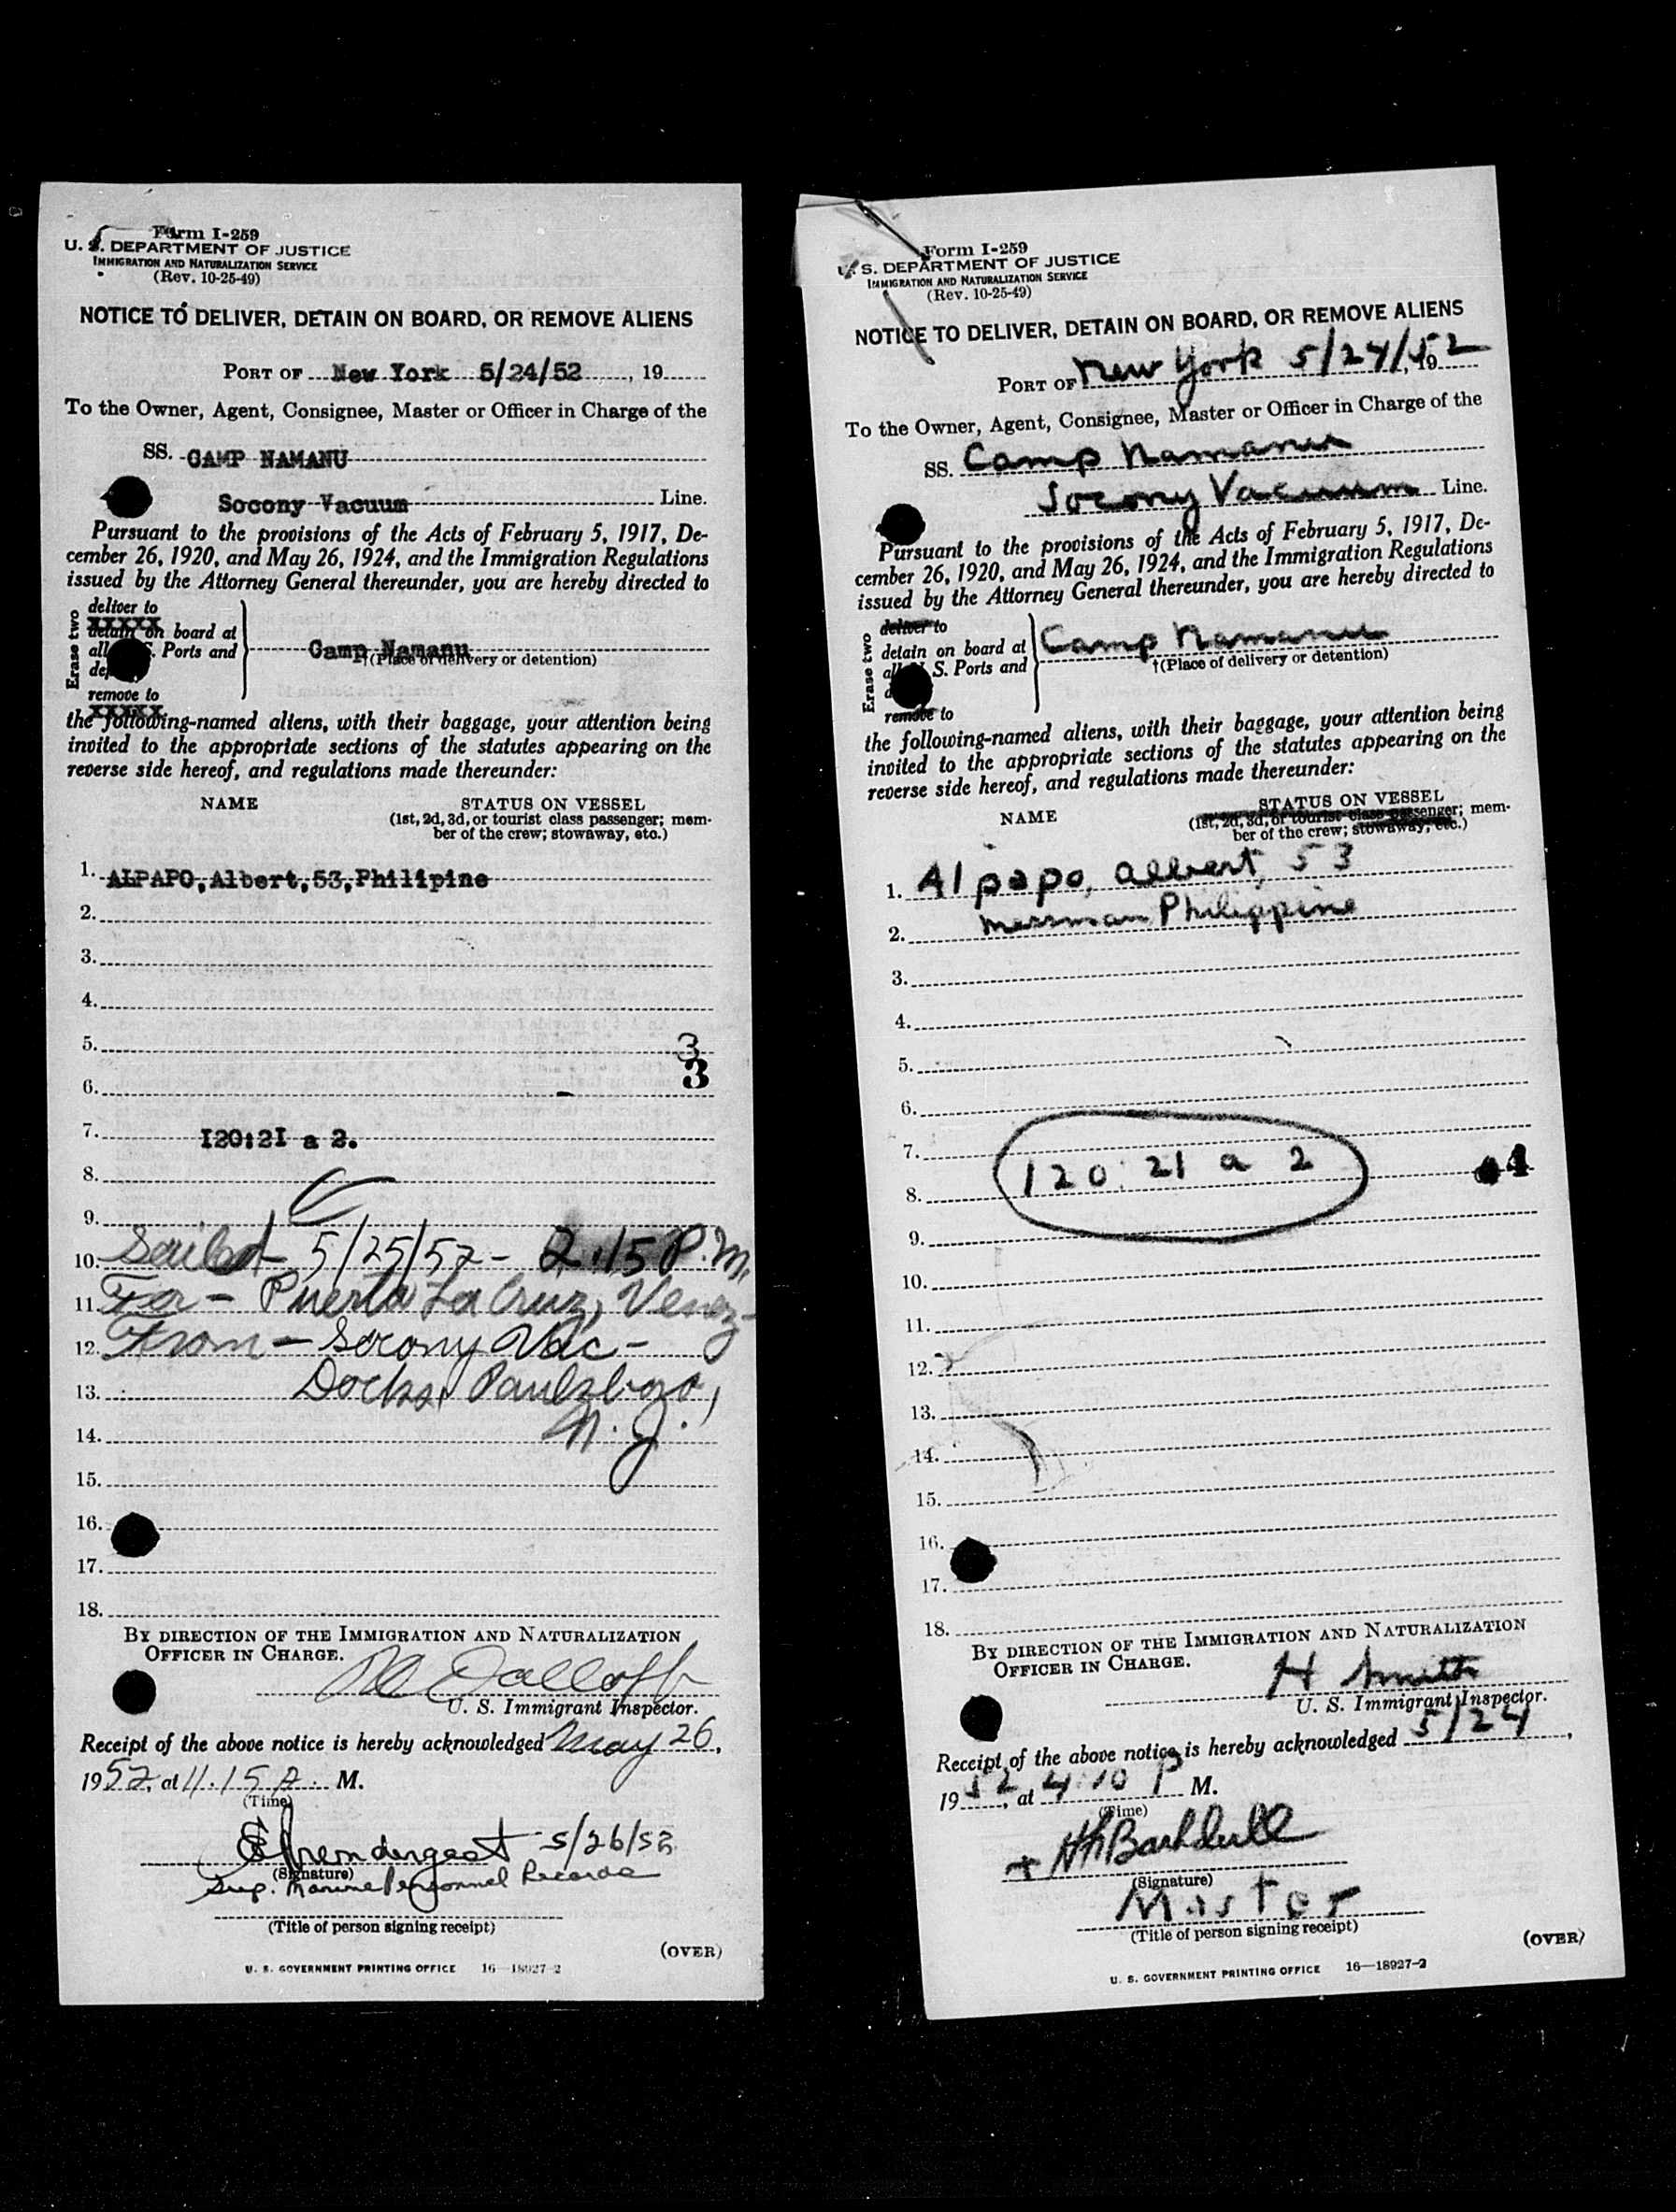 Form I-259
U. S. DEPARTMENT OF JUSTICE
IMMIGRATION AND NATURALIZATION SERVICE
(Rev. 10-25-49)
NOTICE TO DELIVER, DETAIN ON BOARD, OR REMOVE ALIENS
PORT OF New York 5/24/52, 19
To the Owner, Agent, Consignee, Master or Officer in Charge of the
SS. CAMP NAMANU
Socony Vacuum Line.
Pursuant to the provisions of the Acts of February 5, 1917, De-
cember 26, 1920, and May 26, 1924, and the Immigration Regulations
issued by the Attorney General thereunder, you are hereby directed to
Erase two
deliver to
XXXXX
detain on board at
all S. Ports and
Camp Namanu
†(Place of delivery or detention)
remove to
XXXXX
the following-named aliens, with their baggage, your attention being
invited to the appropriate sections of the statutes appearing on the
reverse side hereof, and regulations made thereunder:
NAME STATUS ON VESSEL
(1st, 2d, 3d, or tourist class passenger; mem-
ber of the crew; stowaway, etc.)
1. ALPAPO, Albert, 53, Philipine
2.
3.
4.
5. 3
6. 3
7. I20:2I a 2.
8.
9.
10. Sailed 5/25/52 - 2.15 P.M.
11. For - Puerta La Cruz, Venez-
12. From - Socony Vac -
13. Docks, Paulsboro,
14. N.J.
15.
16.
17.
18.
BY DIRECTION OF THE IMMIGRATION AND NATURALIZATION
OFFICER IN CHARGE.
U. S. Immigrant Inspector.
Receipt of the above notice is hereby acknowledged May 26,
1952, at 11.15 A. M.
(Time)
5/26/52
(Signature)
Sup. Marine Personnel Records
(Title of person signing receipt)
(OVER)
U. S. GOVERNMENT PRINTING OFFICE 16—18927-2
Form I-259
U. S. DEPARTMENT OF JUSTICE
IMMIGRATION AND NATURALIZATION SERVICE
(Rev. 10-25-49)
NOTICE TO DELIVER, DETAIN ON BOARD, OR REMOVE ALIENS
PORT OF New York 5/24/, 1952
To the Owner, Agent, Consignee, Master or Officer in Charge of the
SS. Camp Namanu
Socony Vacuum Line.
Pursuant to the provisions of the Acts of February 5, 1917, De-
cember 26, 1920, and May 26, 1924, and the Immigration Regulations
issued by the Attorney General thereunder, you are hereby directed to
Erase two
deliver to
detain on board at
S. Ports and
Camp Namanu
†(Place of delivery or detention)
remove to
the following-named aliens, with their baggage, your attention being
invited to the appropriate sections of the statutes appearing on the
reverse side hereof, and regulations made thereunder:
NAME STATUS ON VESSEL
(1st, 2d, 3d, or tourist class passenger; mem-
ber of the crew; stowaway, etc.)
1. Alpapo, Albert, 53
2. messman Philippine
3.
4.
5.
6.
7. 120:21 a 2
8.
9.
10.
11.
12.
13.
14.
15.
16.
17.
18.
BY DIRECTION OF THE IMMIGRATION AND NATURALIZATION
OFFICER IN CHARGE.
H Smith
U. S. Immigrant Inspector.
Receipt of the above notice is hereby acknowledged 5/24,
1952, at 4:10 P M.
(Time)
(Signature)
Master
(Title of person signing receipt)
(OVER)
U. S. GOVERNMENT PRINTING OFFICE 16—18927-2